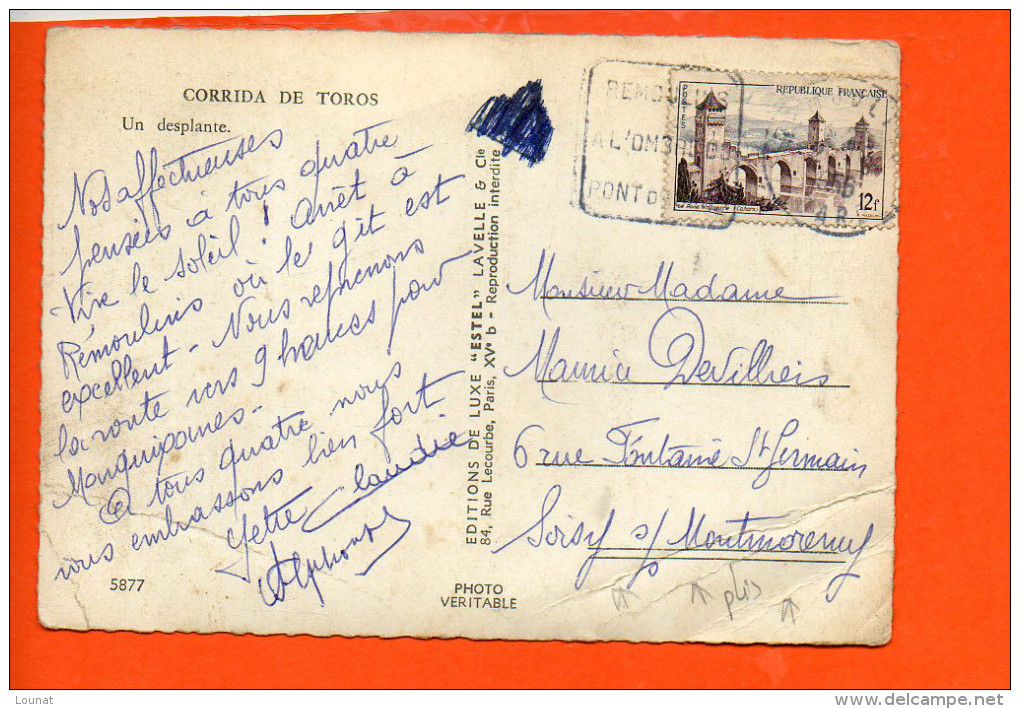 CORRIDA DE TOROS
Un desplante.
Nos affectueuses
pensées à tous quatre
Vive le soleil ! arrêt à
Rémoulins où le gît est
excellent - Nous reprenons
la route vers 9 heures pour
A tous quatre nous
vous embrassons bien fort
Claudie
Alphonse
5877
PHOTO
VERITABLE
EDITIONS DE LUXE "ESTEL" LAVELLE & Cie
84, Rue Lecourbe, Paris, XVe b - Reproduction interdite
REMOULINS
A L'OMBRE DU
PONT DU
POSTES
REPUBLIQUE FRANÇAISE
Le Pont Valentré (Cahors)
12f
Monsieur Madame
Maurice Devilliers
6 rue Fontaine St Germain
Soisy s/ Montmorency
plis
Lounat
www.delcampe.net